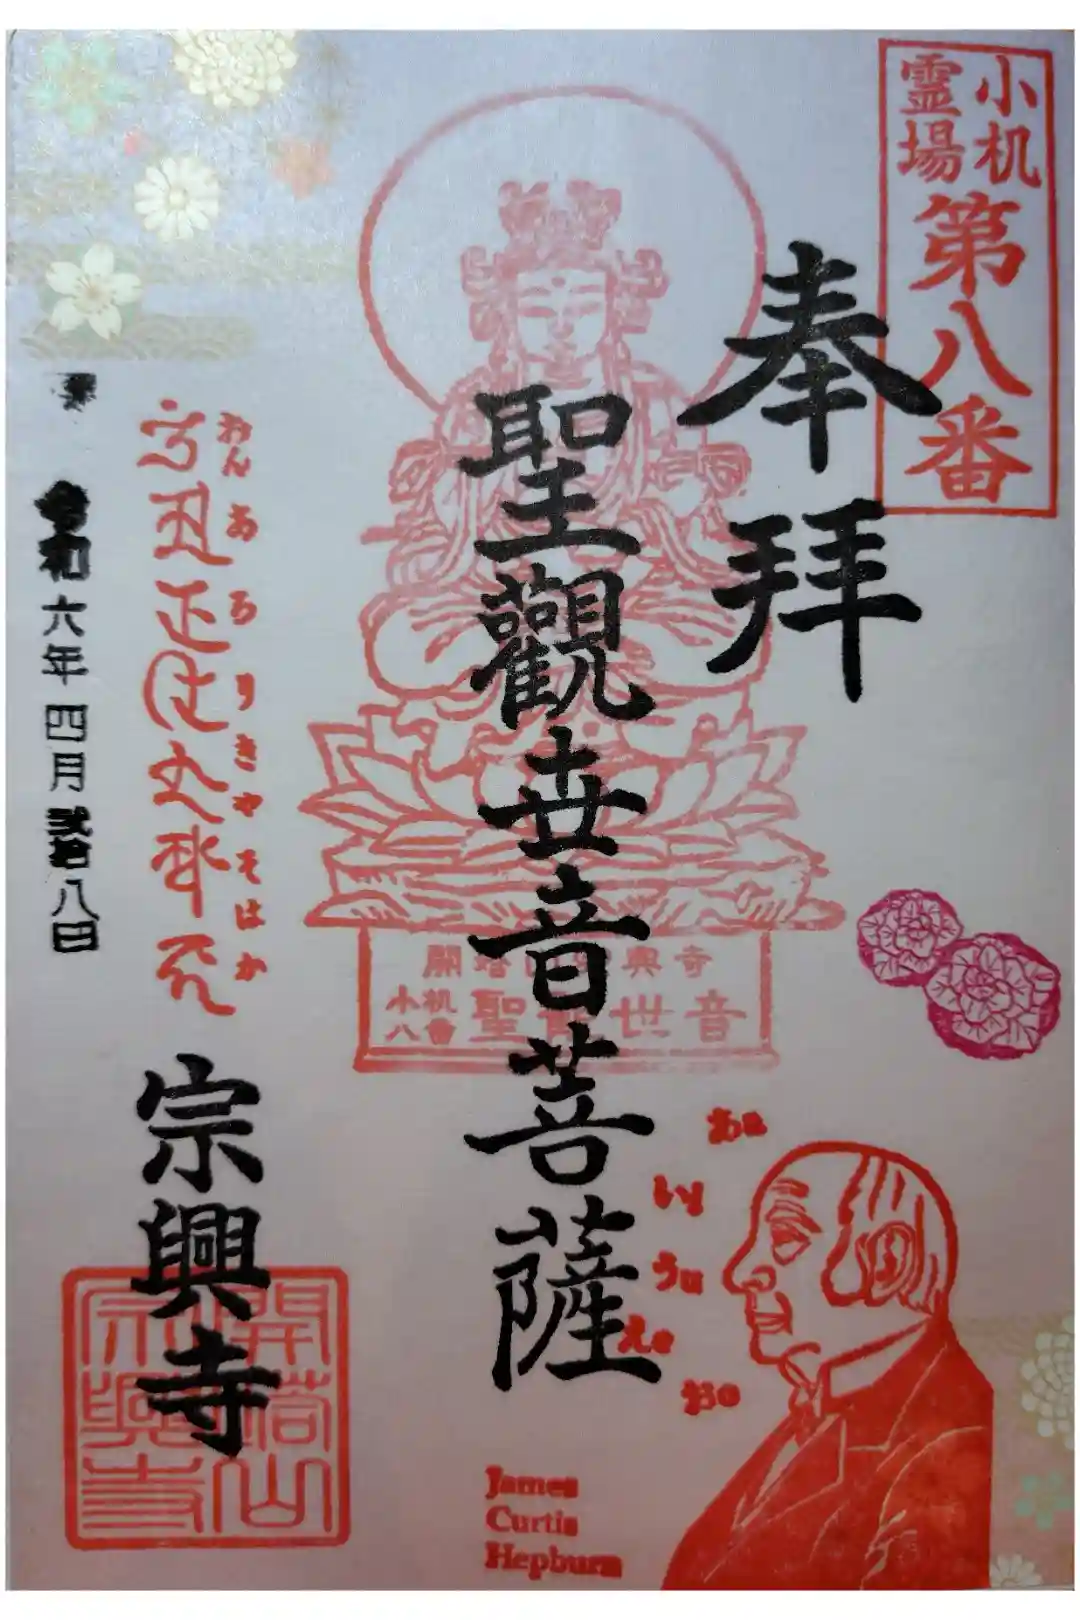 小机
霊場
第八番
奉拝
聖觀世音菩薩
開塔山宗興寺
小机
八番
聖観世音
おんあろりきやそはか
令和六年四月弐拾八日
宗興寺
開塔山
宗興寺
あa
いi
うu
えe
おo
James
Curtis
Hepburn